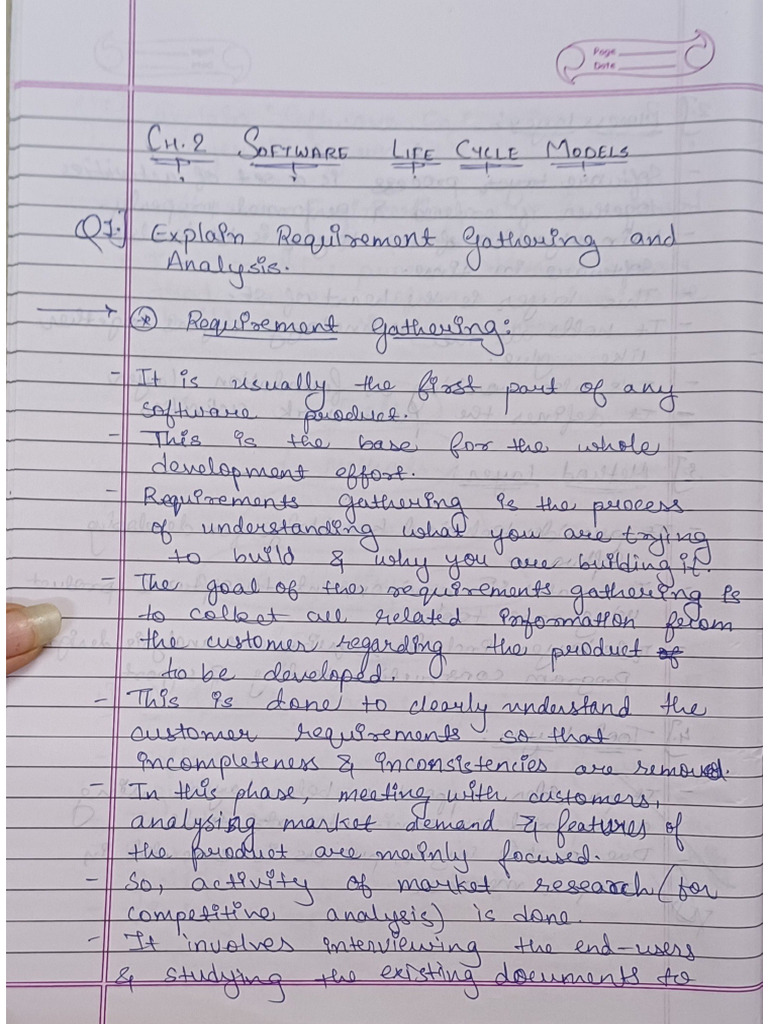 Page
Date
CH.2 SOFTWARE LIFE CYCLE MODELS
Q1.] Explain Requirement Gathering and
Analysis.
→ * Requirement Gathering:
- It is usually the first part of any
software product.
- This is the base for the whole
development effort.
- Requirements gathering is the process
of understanding what you are trying
to build & why you are building it.
- The goal of the requirements gathering is
to collect all related information from
the customer regarding the product of
to be developed.
- This is done to clearly understand the
customer requirements so that
incompleteness & inconsistencies are removed.
- In this phase, meeting with customers,
analysing market demand & features of
the product are mainly focused.
- So, activity of market research (for
competitive analysis) is done.
- It involves interviewing the end-users
& studying the existing documents to